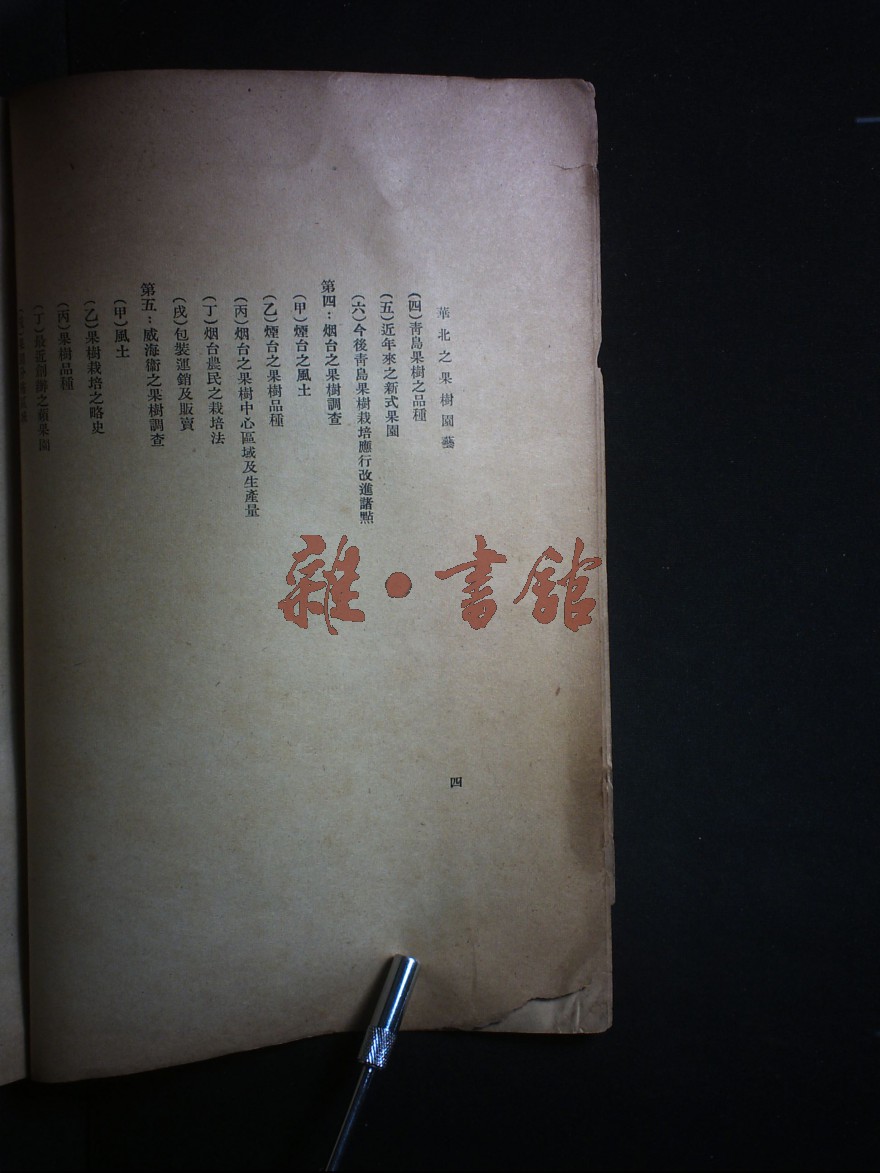 華北之果樹園藝
四
(四)靑島果樹之品種
(五)近年來之新式果園
(六)今後靑島果樹栽培應行改進諸點
第四：烟台之果樹調查
(甲)煙台之風土
(乙)煙台之果樹品種
(丙)烟台之果樹中心區域及生產量
(丁)烟台農民之栽培法
(戌)包裝運銷及販賣
第五：威海衞之果樹調查
(甲)風土
(乙)果樹栽培之略史
(丙)果樹品種
(丁)最近創辦之蘋果園
雜•書館